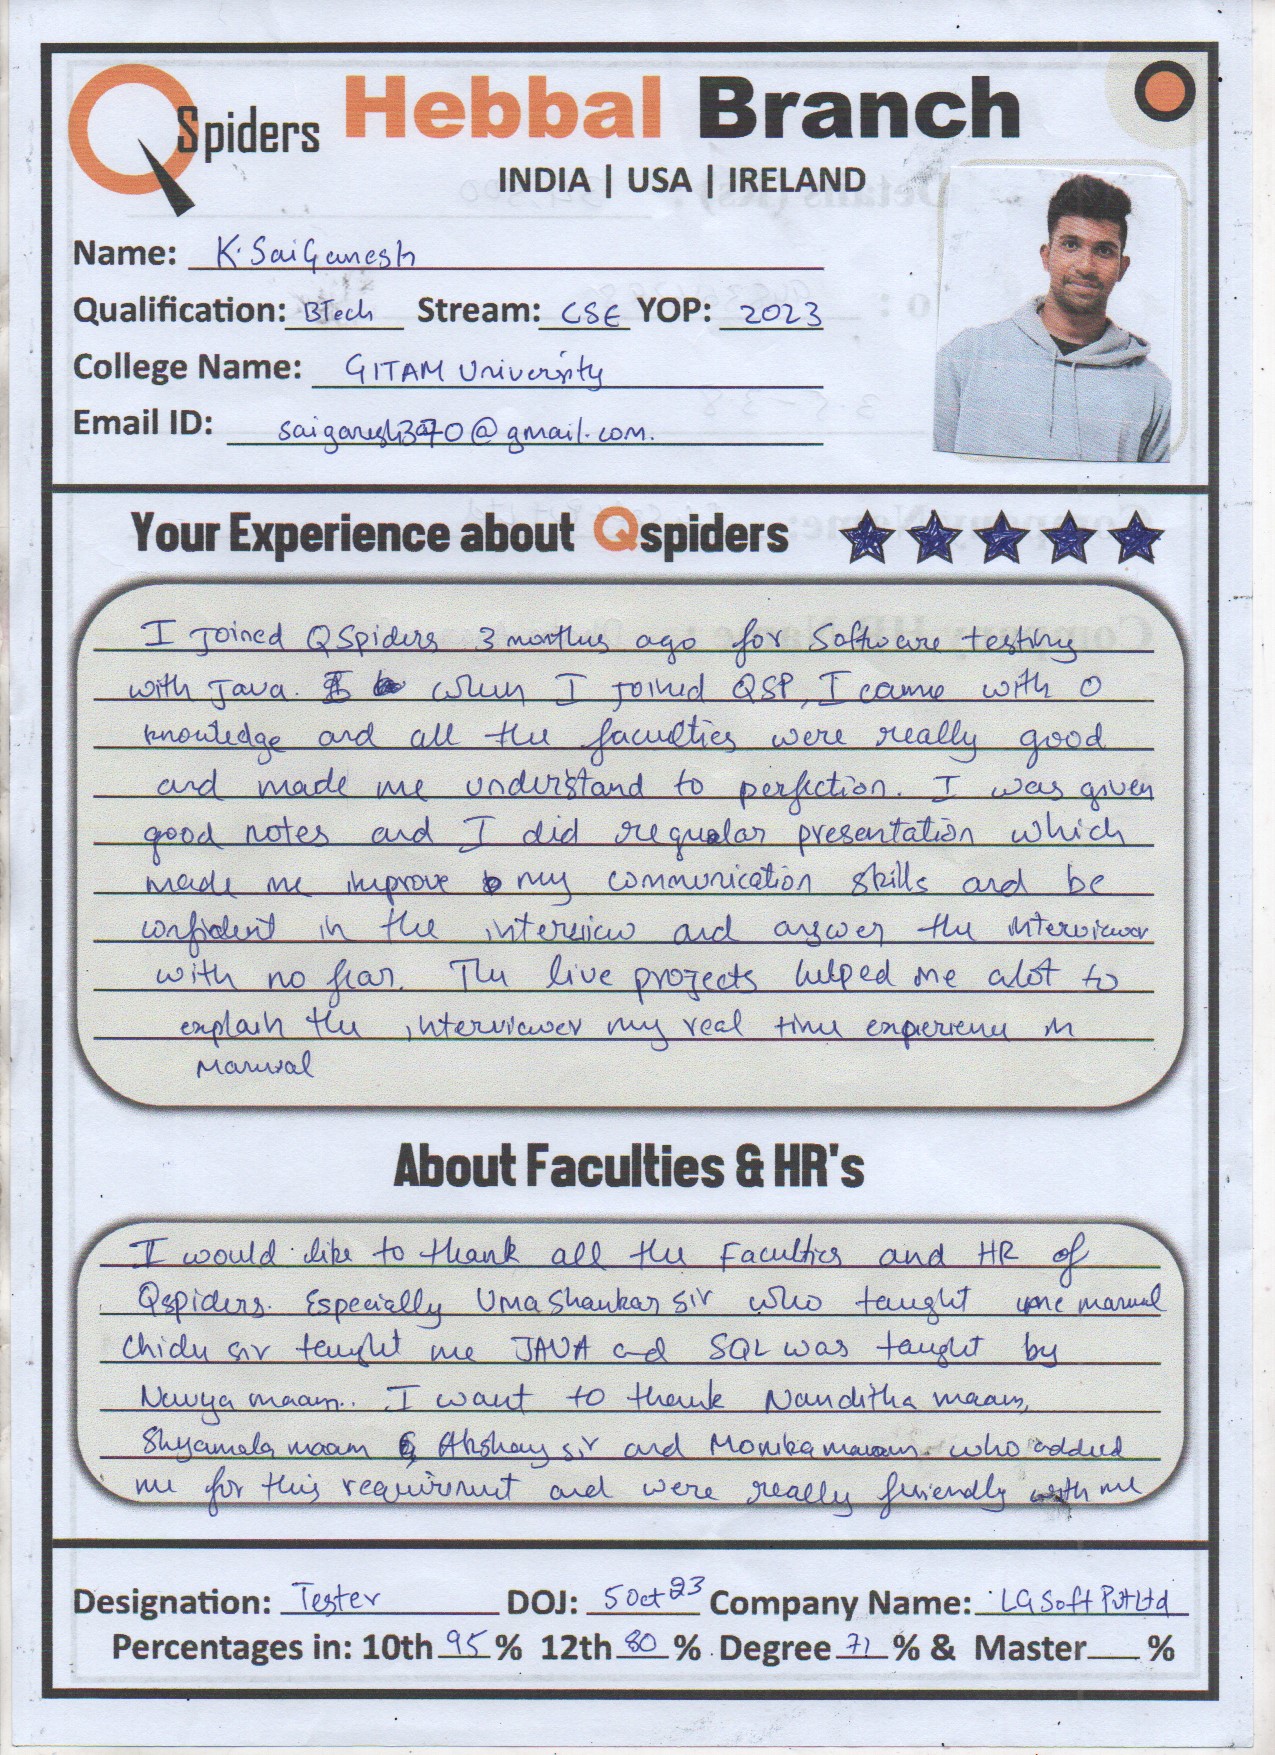 QSpiders Hebbal Branch
INDIA | USA | IRELAND
Name: K. SaiGanesh
Qualification: BTech Stream: CSE YOP: 2023
College Name: GITAM University
Email ID: @gmail.com.
Your Experience about Qspiders
I joined QSpiders 3 months ago for Software testing
with Java. when I joined QSP, I came with 0
knowledge and all the faculties were really good
and made me understand to perfection. I was given
good notes and I did regualar presentation which
made me improve my communication skills and be
confident in the interview and answer the interviewer
with no fear. The live projects helped me alot to
explain the interviewer my real time experience in
Manual
About Faculties & HR's
I would like to thank all the Faculties and HR of
Qspiders. Especially UmaShankar sir who taught me manual
Chidu sir taught me JAVA and SQL was taught by
Navya maam.. I want to thank Nanditha maam,
Shyamala maam & Akshay sir and Monika maam who added
me for this requirement and were really friendly with me
Designation: Tester DOJ: 5 Oct 23 Company Name: LG Soft Pvt Ltd
Percentages in: 10th 95 % 12th 80 % Degree 71 % & Master %